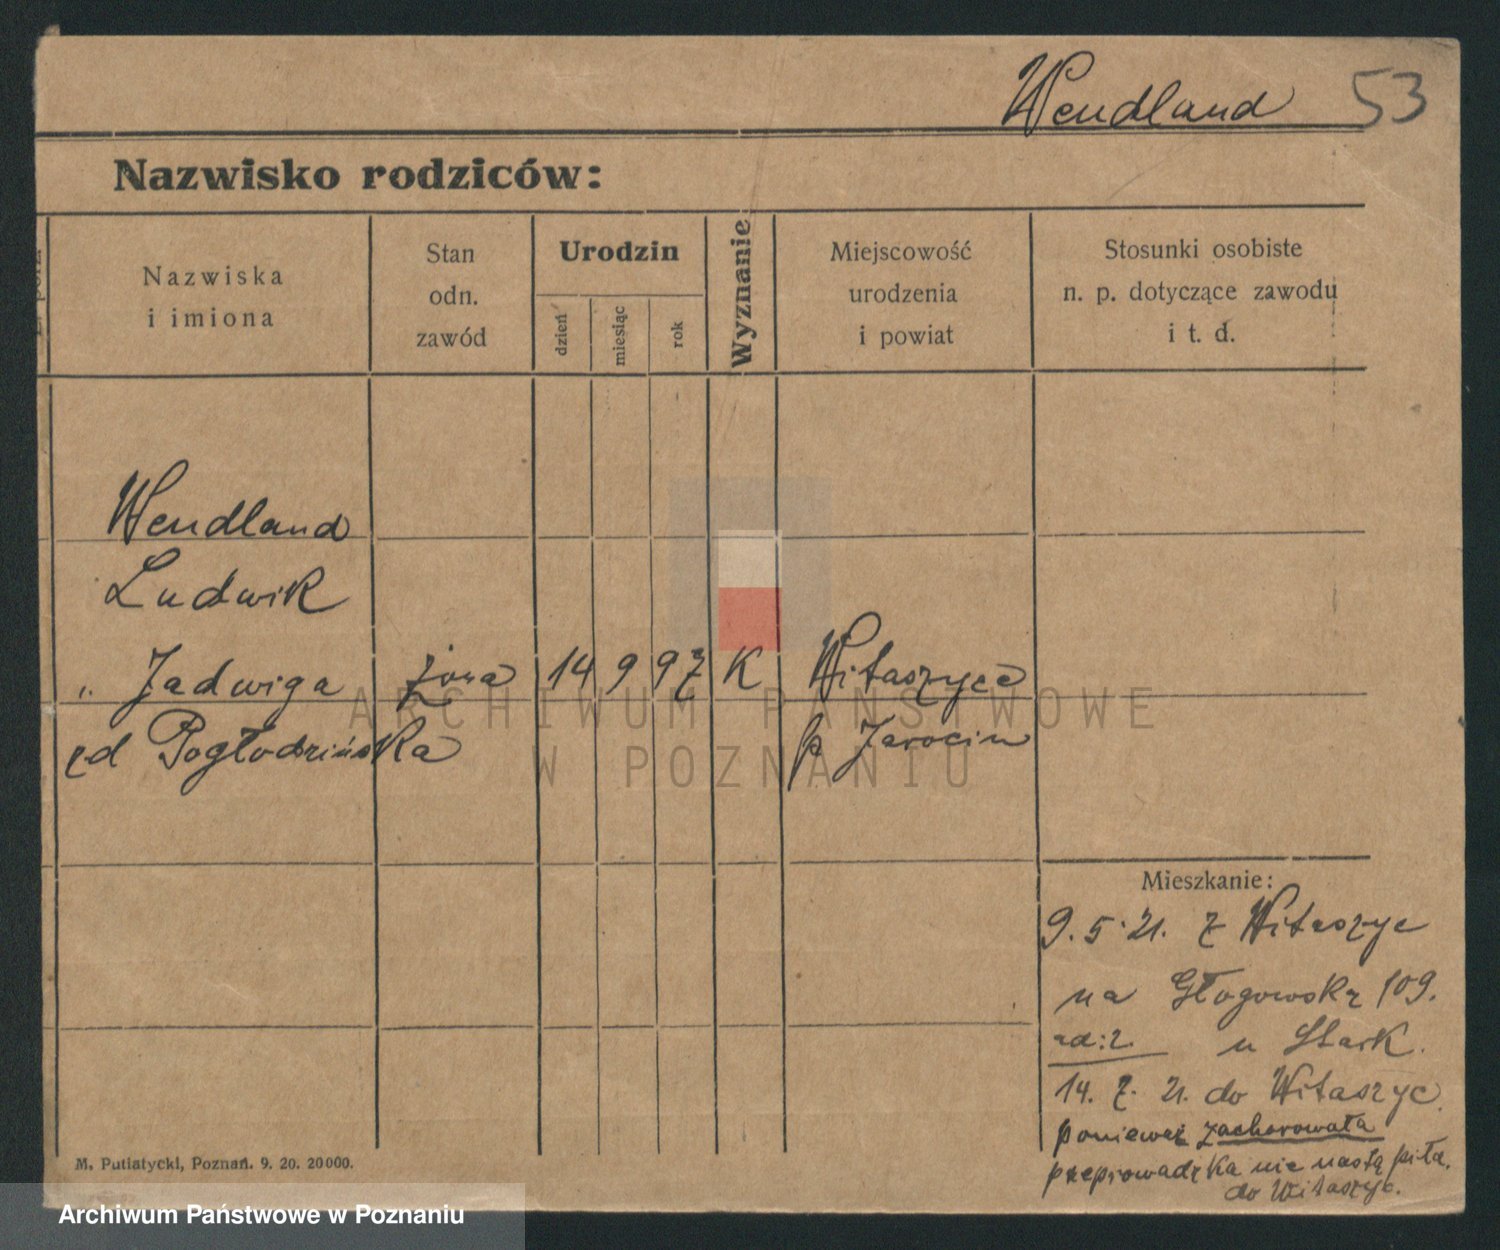 Wendland 53
Nazwisko rodziców:
Nazwiska
i imiona
Stan
odn.
zawód
Urodzin
dzień
miesiąc
rok
Wyznanie
Miejscowość
urodzenia
i powiat
Stosunki osobiste
n. p. dotyczące zawodu
i t. d.
Wendland
Ludwik
" Jadwiga żona 14 9 97 K Witaszyce
zd Pogłodzińska p Jarocin
ARCHIWUM PAŃSTWOWE
W POZNANIU
Mieszkanie:
9.5.21. z Witaszyc
na Głogowską 109.
ad:2. u Stark.
14. 7. 21. do Witaszyc.
ponieważ zachorowała
przeprowadzka nie nastąpiła.
do Witaszyc.
M. Putiatycki, Poznań. 9. 20. 20000.
Archiwum Państwowe w Poznaniu